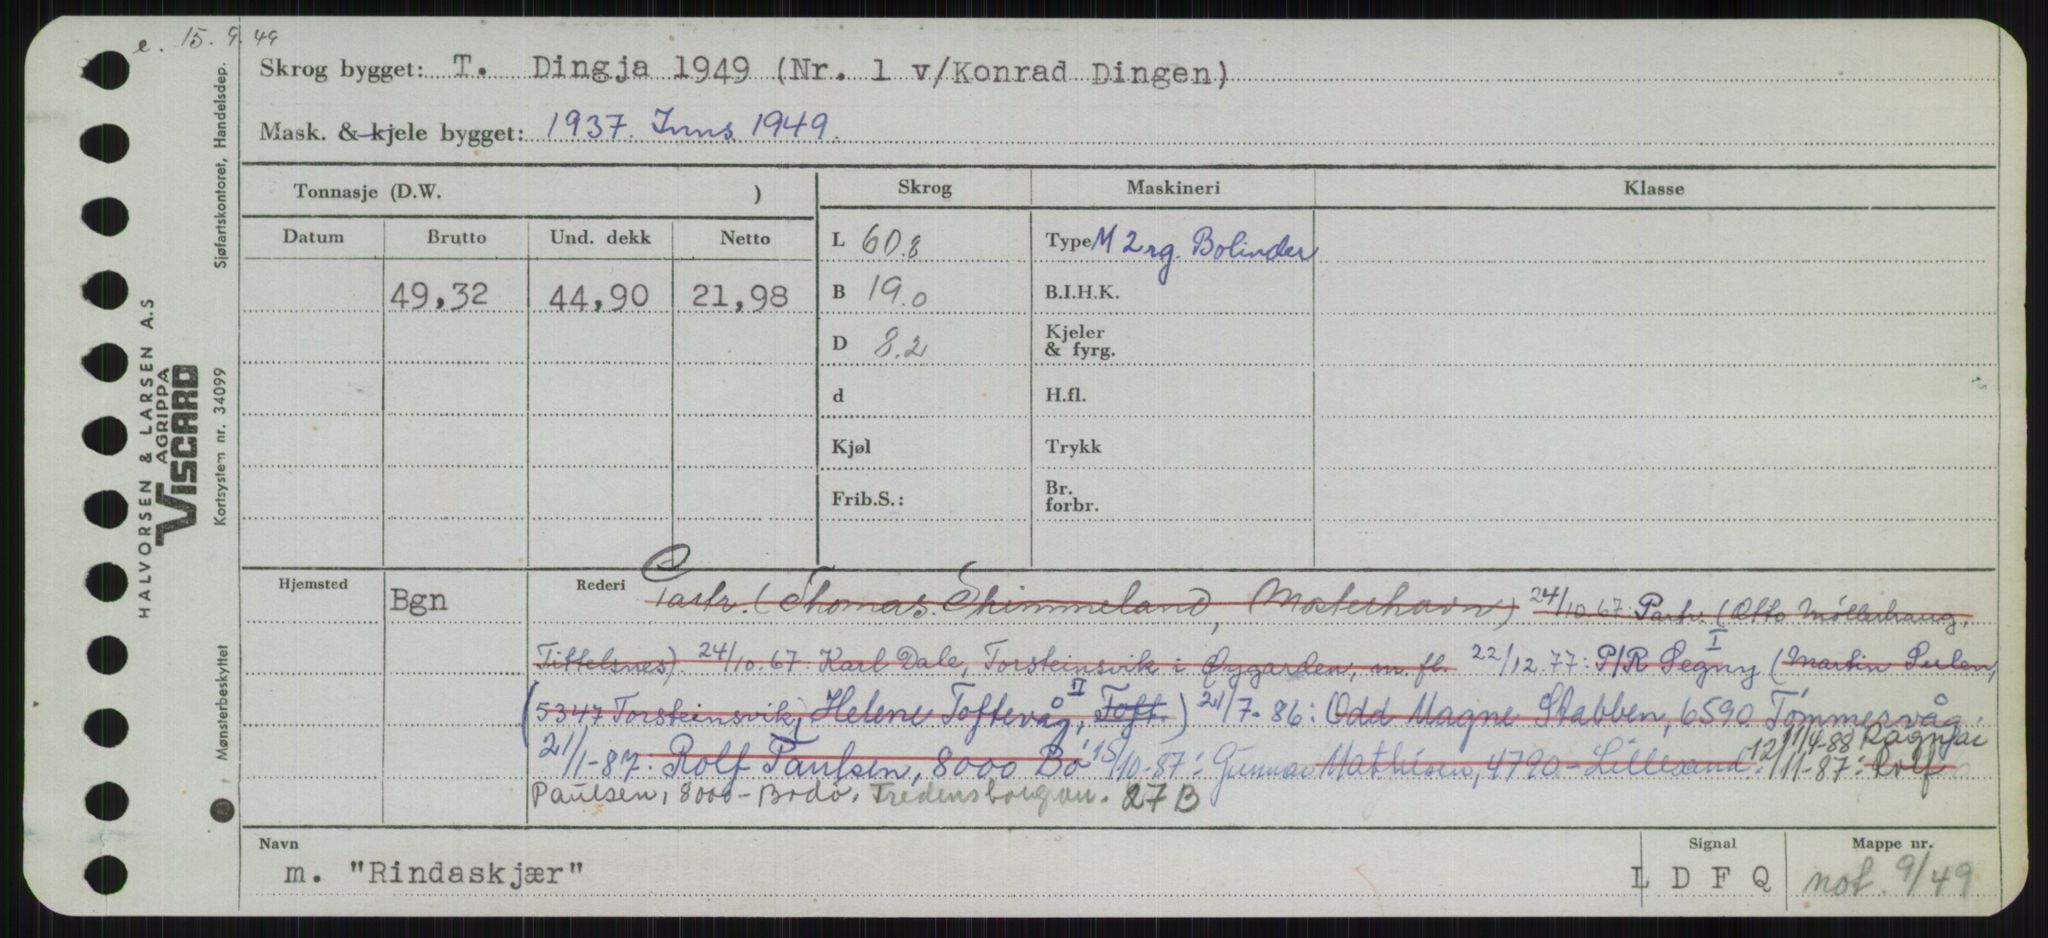 e. 15.9.49
Skrog bygget: T. Dingja 1949 (Nr. 1 v/Konrad Dingen)
Mask. & kjele bygget: 1937. Inns 1949.
Tonnasje (D.W. )
Skrog
Maskineri
Klasse
Datum Brutto Und. dekk Netto
49,32 44,90 21,98
L 60.8
B 19.0
D 8.2
d
Kjøl
Frib.S.:
Type M 2rg. Bolinder
B.I.H.K.
Kjeler
& fyrg.
H.fl.
Trykk
Br.
forbr.
Hjemsted Bgn
Rederi Partr. (Thomas Skimmeland, Mosterhavn) 24/10.67: Partr. (Otto Möllerhaug,
Tittelsnes). 24/10.67: Karl Dale, Torsteinsvik i Øygarden, m.fl. 22/12.77: P/R Segny (I Martin Perlen,
(5347 Torsteinsvik) Helene Toftevåg, II Toft.) 21/7-86: Odd Magne Stabben, 6590 Tömmervåg.
21/1-87: Rolf Paulsen, 8000 Bo 15/10-87: Gunnar Mathisen, 4790-Lillesand. 12/11-87: Rolf
11/4-88 Ragnar
Paulsen, 8000-Bodö, Fredensborgvn. 27 B
Navn
m. "Rindaskjær"
Signal
L D F Q
Mappe nr.
not. 9/49
HALVORSEN & LARSEN A.S
AGRIPPA
VISCARD
Sjøfartskontoret, Handelsdep.
Kortsystem nr. 34099
Mønsterbeskyttet